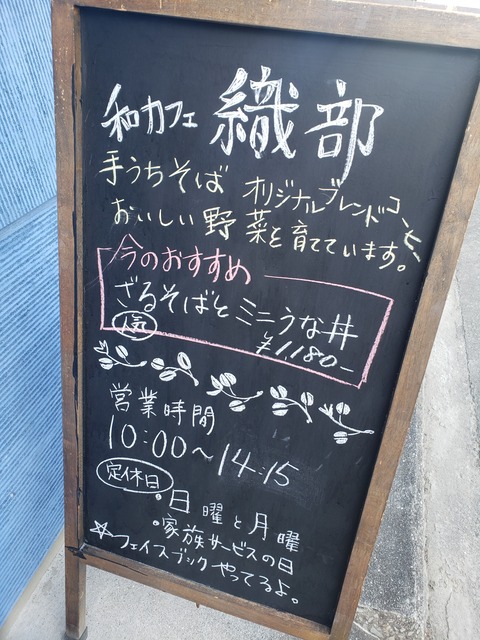 和カフェ 織部
手うちそば オリジナルブレンドコーヒー
おいしい野菜を育てています。
今のおすすめ
ざるそばとミニうな丼
人気 ¥1,180-
営業時間
10:00~14:15
定休日
・日曜と月曜
・家族サービスの日
☆フェイスブックやってるよ。